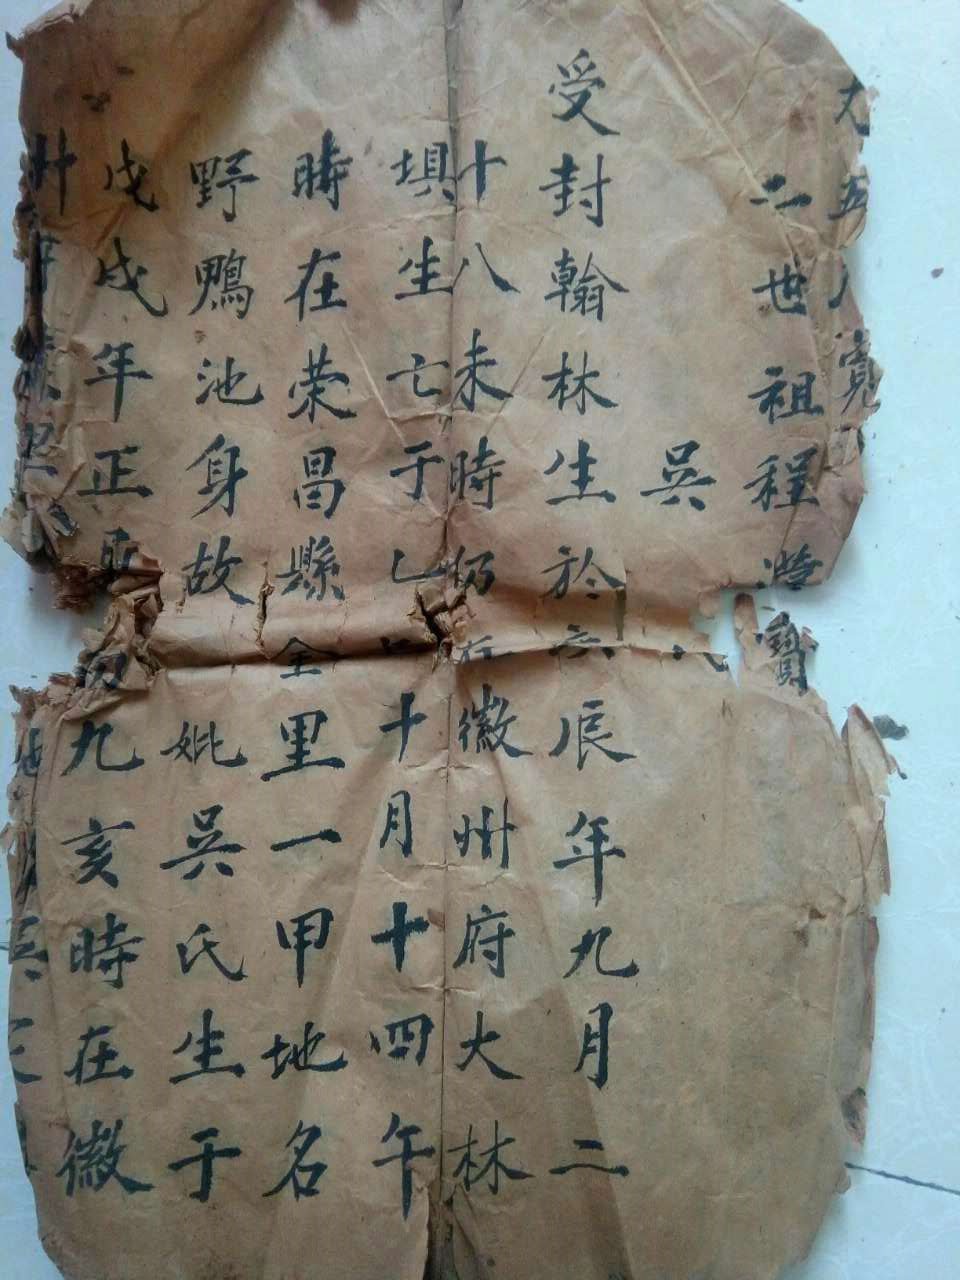 五八寬
二世祖程瀅寶
吳氏
受封翰林生於辰年九月二
十八未時仍在徽州府大林
垻生亡于乙十月十十四午
時在荣昌縣金里一甲地名
野鴨池身故妣吳氏生于
戊戌年正月初九亥時在徽
卅